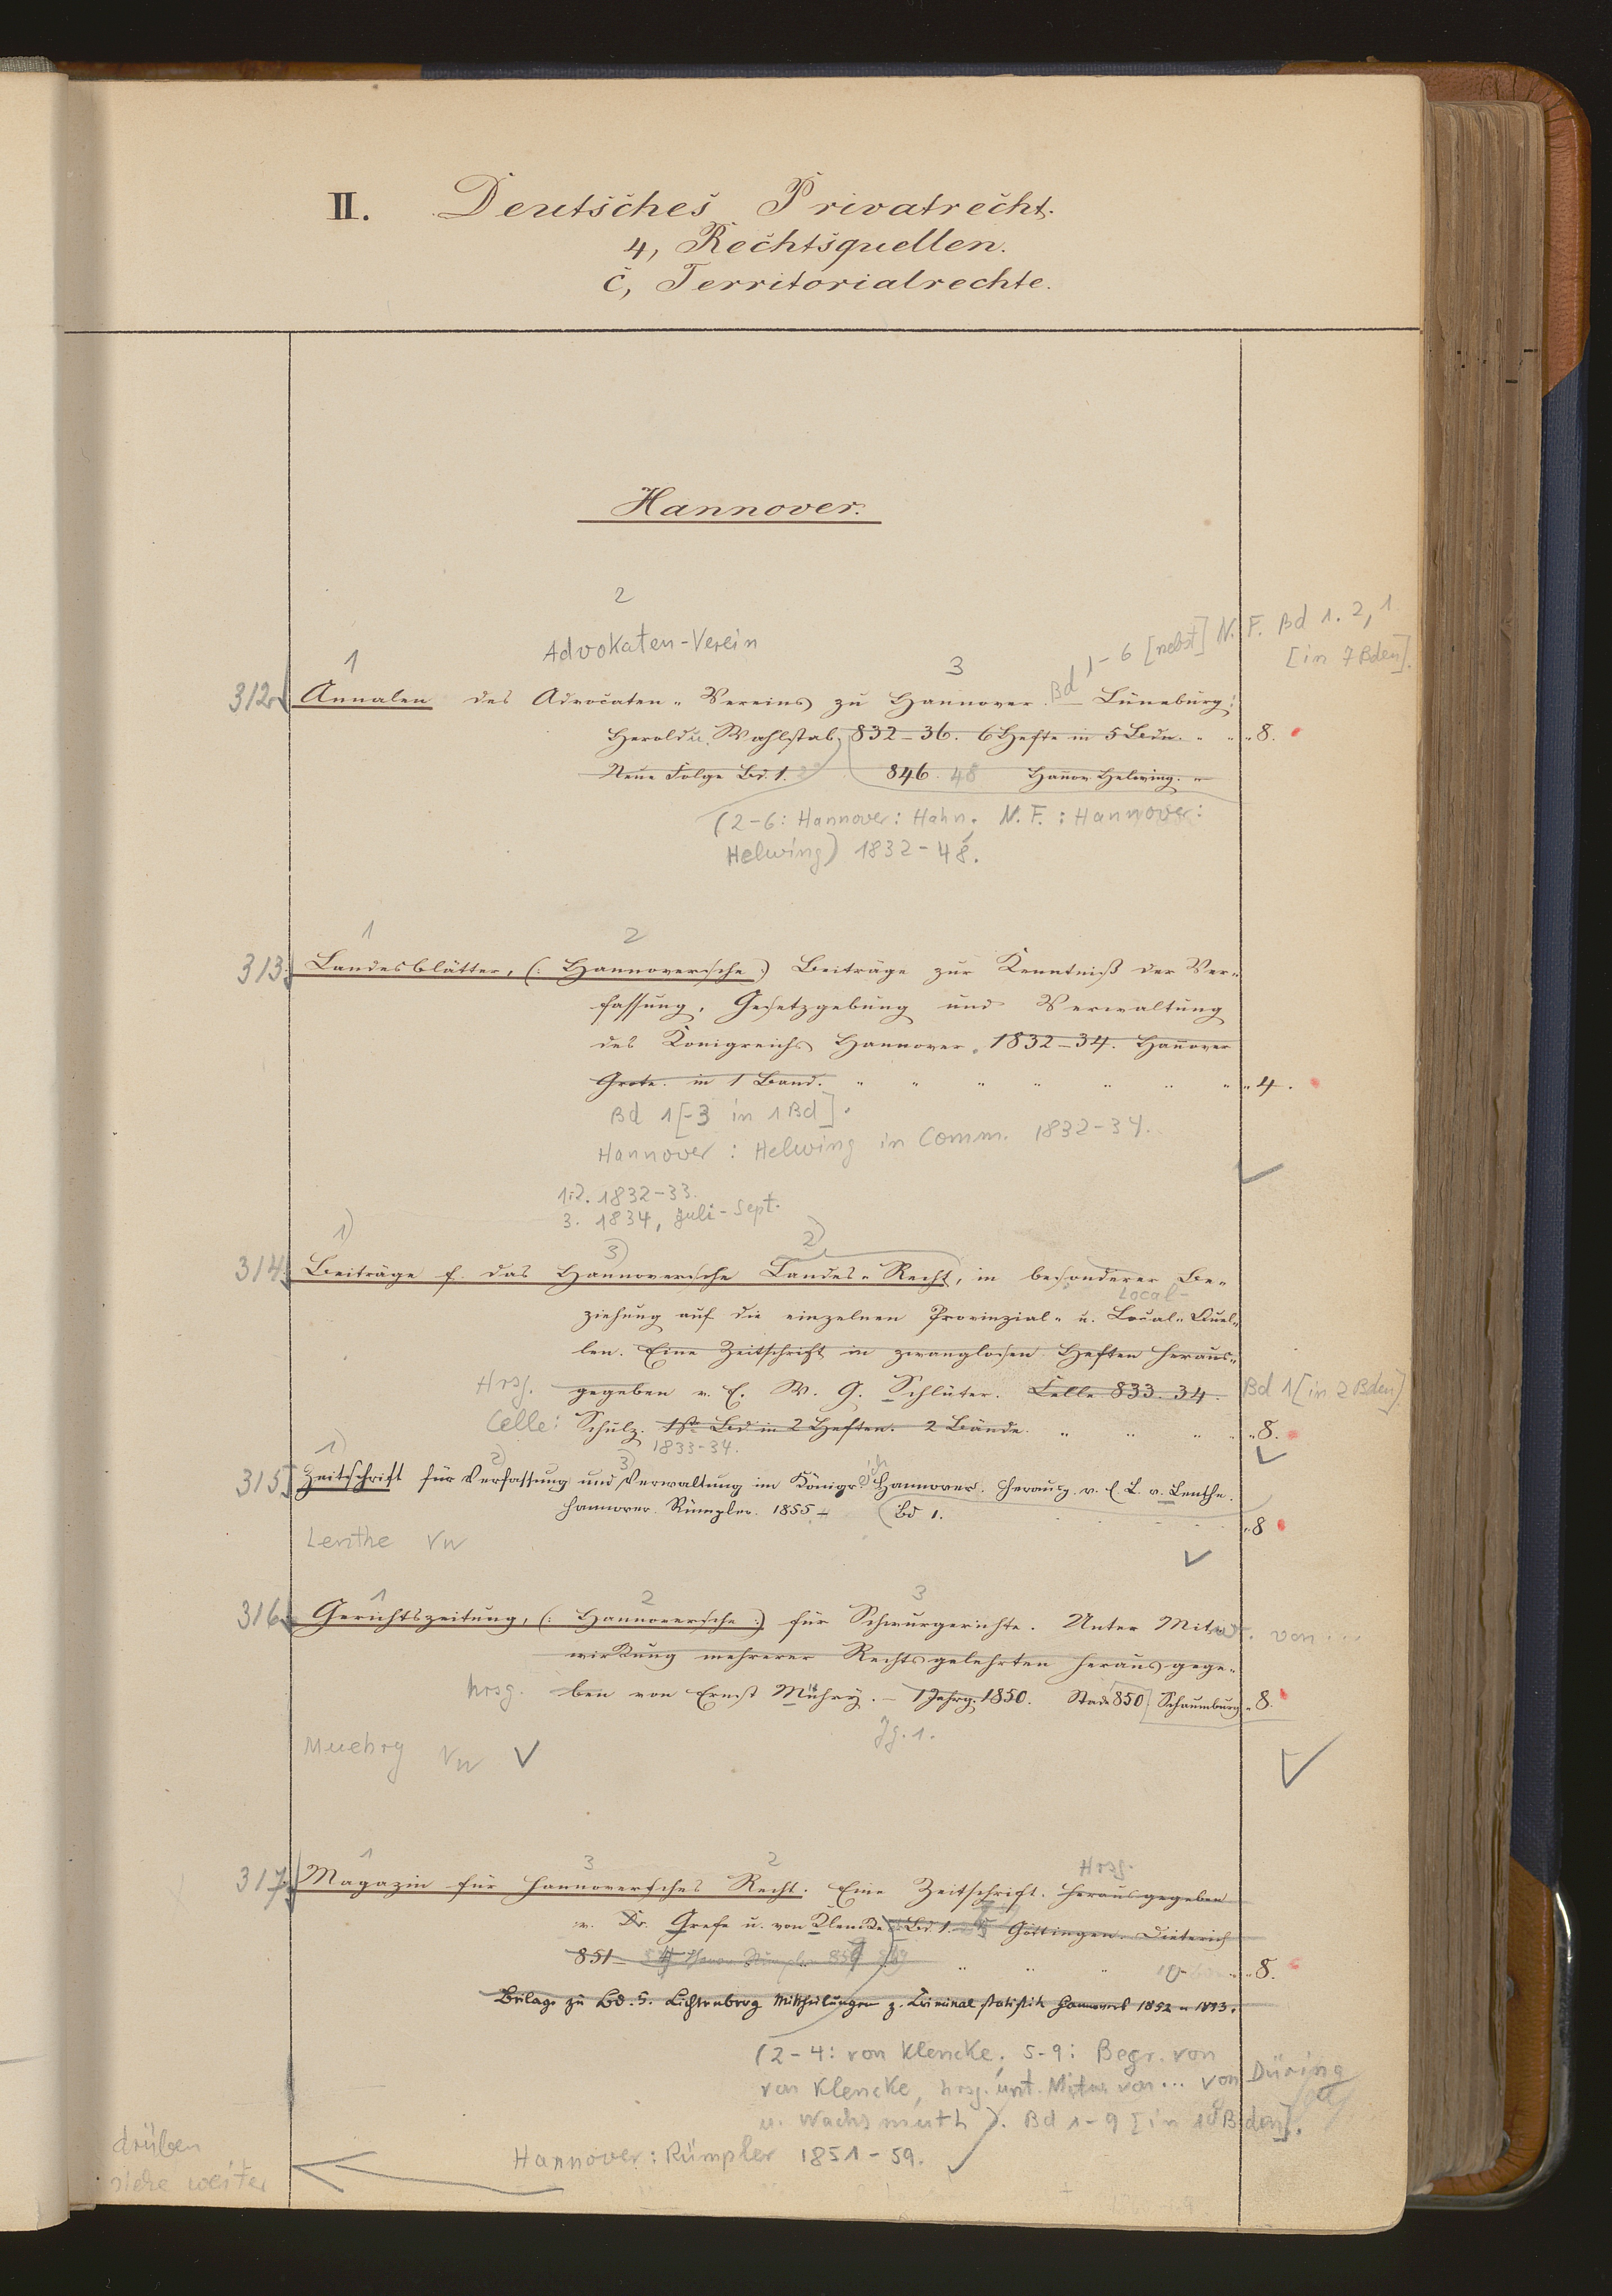 II. Deutsches Privatrecht.
4, Rechtsquellen.
c, Territorialrechte.
Hannover.
2
Advokaten-Verein
1 3 Bd 1-6 [nebst] N. F. Bd 1. 2, 1
[in 7 Bden].
312 Annalen des Advocaten-Vereins zu Hannover. – Lüneburg:
Herold u. Wahlstab, 832–36. 6 Hefte in 5 Bdn. " " " 8.
Neue Folge Bd. 1. 846. 48 Hanov. Helwing. "
(2-6: Hannover: Hahn. N. F.: Hannover:
Helwing) 1832-48.
1 2
313. Landesblätter, (: Hannoversche :) Beiträge zur Kenntniß der Ver-
fassung, Gesetzgebung und Verwaltung
des Königreichs Hannover. 1832–34. Hanover
Grote. in 1 Band. " " " " " " " " 4.
Bd 1[-3 in 1 Bd].
Hannover: Helwing in Comm. 1832-34.
1.2. 1832-33.
3. 1834, Juli-Sept.
1) 3) 2)
314. Beiträge f. das Hannoversche Landes-Recht, in besonderer Be-
Local-
ziehung auf die einzelnen Provinzial- u. Local-Quel-
len. Eine Zeitschrift in zwanglosen Heften heraus-
Hrsg. gegeben v. E. W. G. Schlüter. Celle 833. 34. Bd 1 [in 2 Bden]
Celle: Schulz. 1ster Bd in 2 Heften. 2 Bände. " " " " " 8.
1833-34.
1) 2) 3)
315 Zeitschrift für Verfassung und Verwaltung im Königr. Hannover. Herausg. v. E. L. v. Lenthe.
Hannover. Rümpler. 1855 + Bd 1. " 8
Lenthe Vw
1 2 3
316. Gerichtszeitung, (: Hannoversche :) für Schwurgerichte. Unter Mitw. von ...
wirkung mehrerer Rechtsgelehrten herausgege-
hrsg. ben von Ernst Mühry. – 1 Jahrg. 1850. Stade 850 Schaumburg " 8.
Jg. 1.
Muehry Vw
1 3 2 Hrsg.
317. Magazin für hannoversches Recht. Eine Zeitschrift. Herausgegeben
v. Dr. Grefe u. von Klencke Bd. 1. Göttingen. Dieterich
851– " " " " " 8.
Beilage zu Bd. 5. Lichtenberg Mittheilungen z. Criminalstatistik Hannovers 1852 u 1853.
(2-4: von Klencke; 5-9: Begr. von
von Klencke, hrsg. unt. Mitw von ... von Düring
u. Wachsmuth). Bd 1-9 [in 10 Bden].
Hannover: Rümpler 1851-59.
drüben
siehe weiter